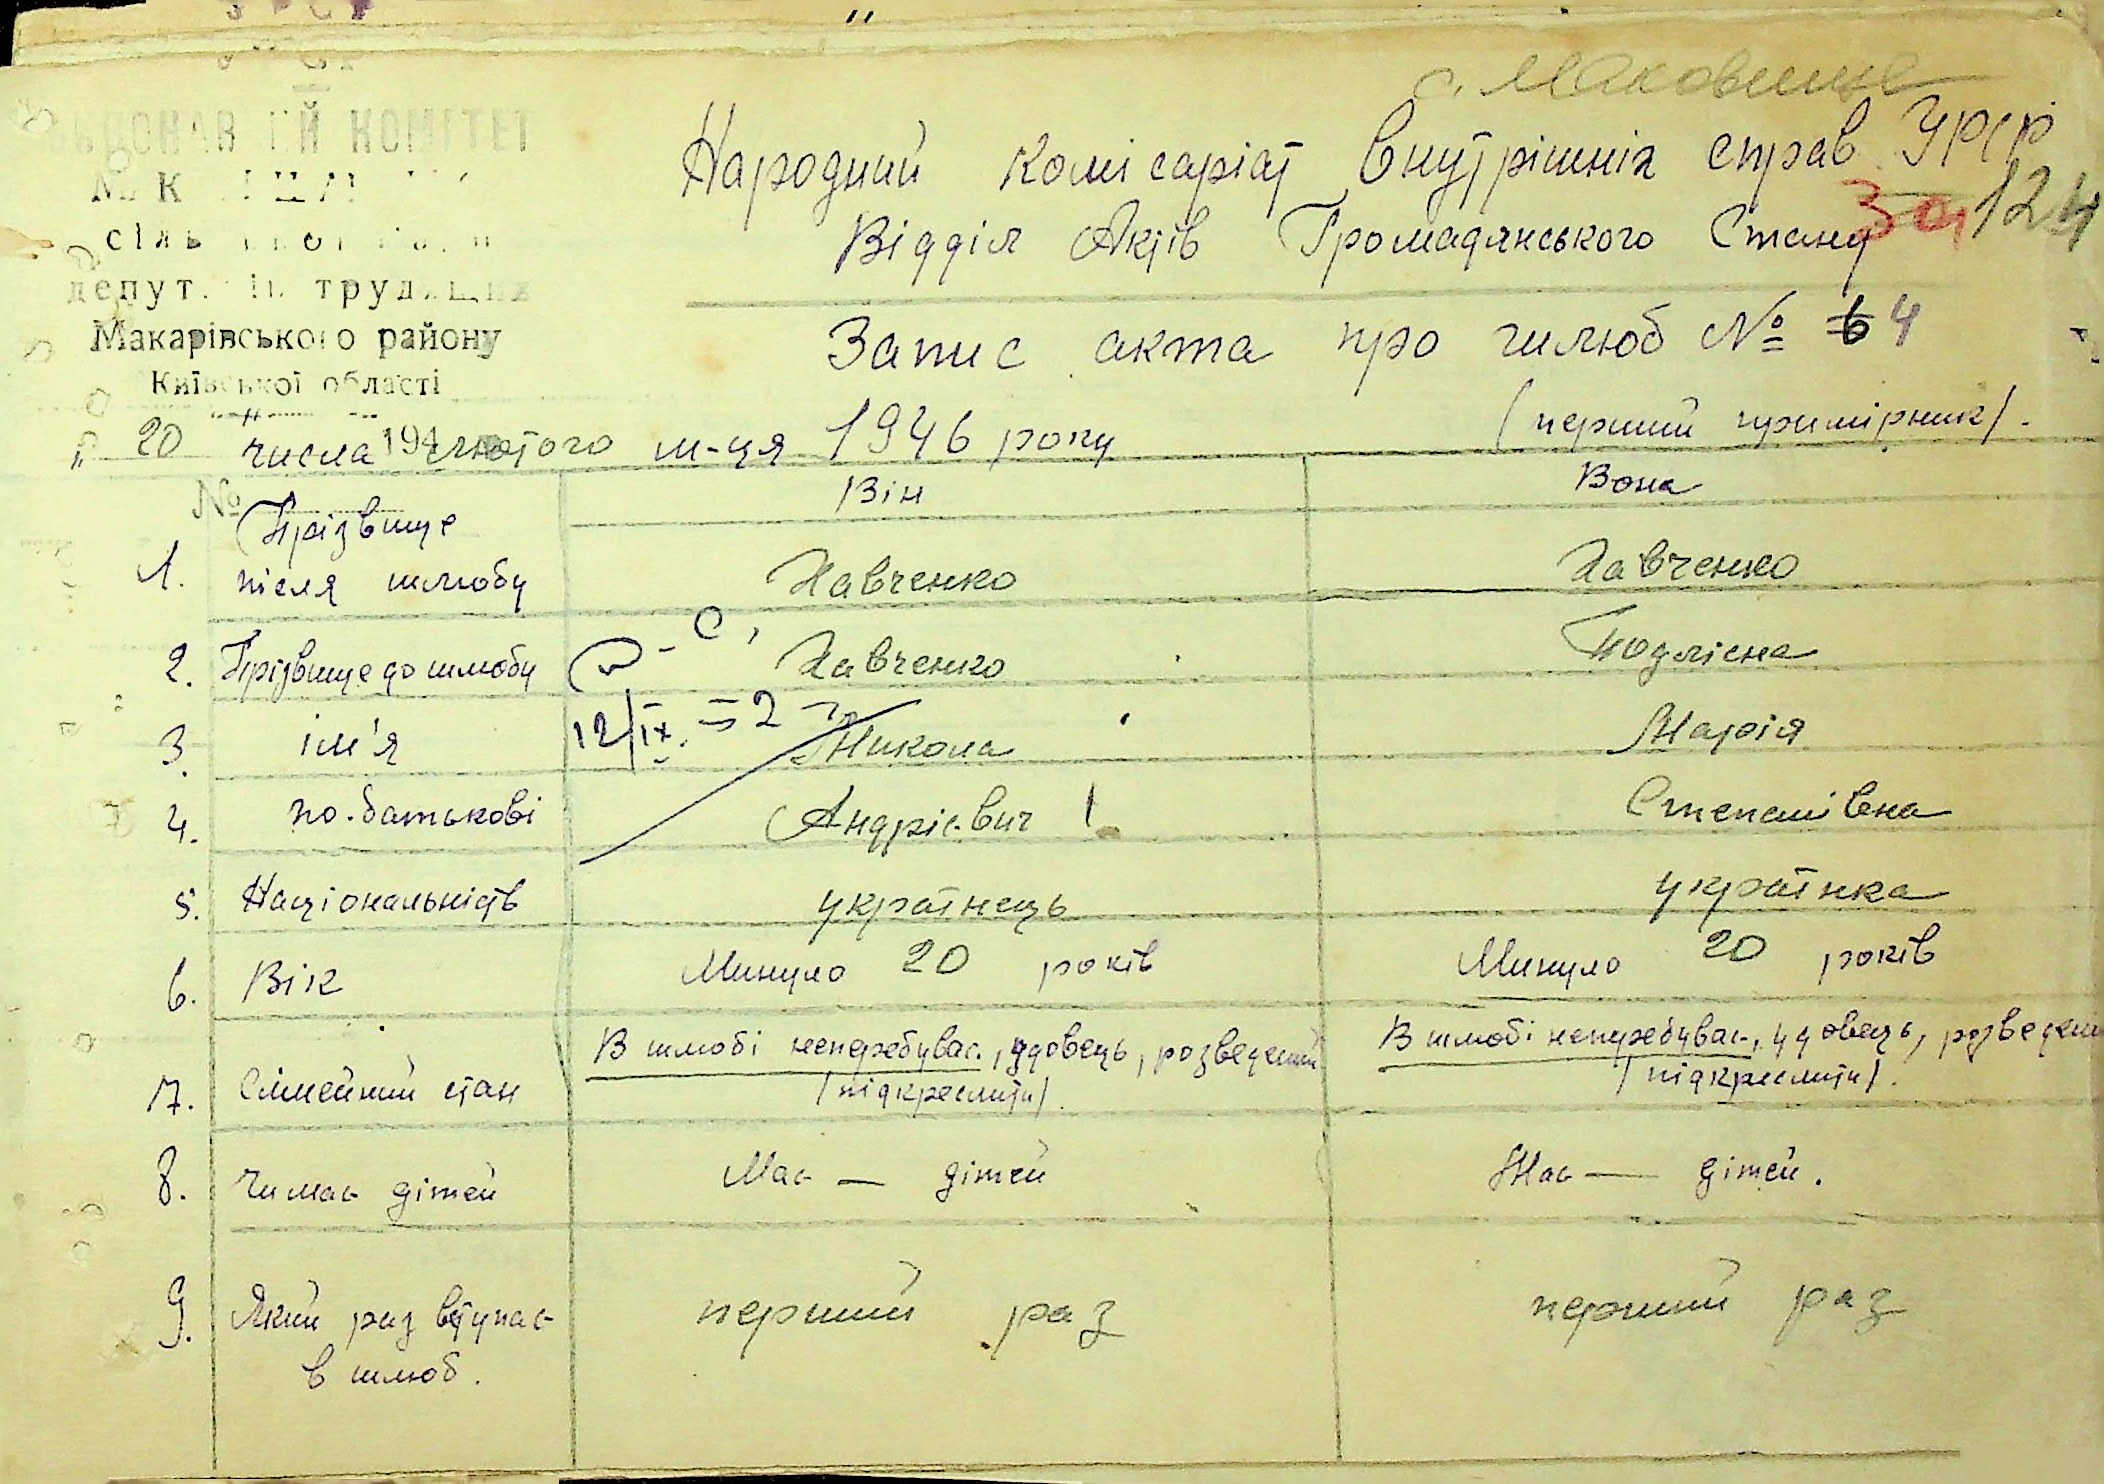 с. Маковище
КОМІТЕТ
Народний Комісаріат Внутрішніх справ УРСР
124
Відділ Актів Громадянського Стану
депут трудящих
Макарівського району
Київської області
Запис акта про шлюб № 6 4
(перший примірник).
20 числа 194 лютого м-ця 1946 року
№
Він
Вона
1. Прізвище після шлюбу
Хавченко
Хавченко
2. Прізвище до шлюбу
Хавченко
Подлісна
3. ім'я
12/IX. 52
Микола
Марія
4. по-батькові
Андрієвич
Степанівна
5. Національність
українець
українка
6. Вік
Минуло 20 років
Минуло 20 років
7. Сімейний стан
В шлюбі неперебував, удовець, розведений
(підкреслити).
В шлюбі неперебував, удовець, розведен
(підкреслити).
8. Чи має дітей
Має — дітей
Має — дітей.
9. Який раз вступає
в шлюб.
перший раз
перший раз